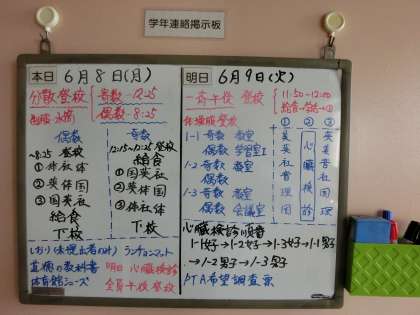 学年連絡掲示板
本日 6月8日(月)
分散登校 奇数-12:25
偶数-8:25
偶数 奇数
~8:25 登校
①体社体
②英体国
③国英社
給食
下校
12:15~12:25 登校
給食
①国英社
②英体国
③体社体
下校
しおり(未提出者のみ) ランチョンマット
道徳の教科書
体育館シューズ
明日 心臓検診
全員午後登校
明日 6月9日(火)
一斉午後登校 11:50-12:00
体操服登校
① ② ③
1-1 奇数 教室
偶数 学習室1
1-2 奇数 教室
偶数
1-3 奇数 教室
偶数 会議室
心臓検診
心臓検診順番
1-1女子→1-2女子→1-3女子→1-1男子
→1-2男子→1-3男子
PTA希望調査票